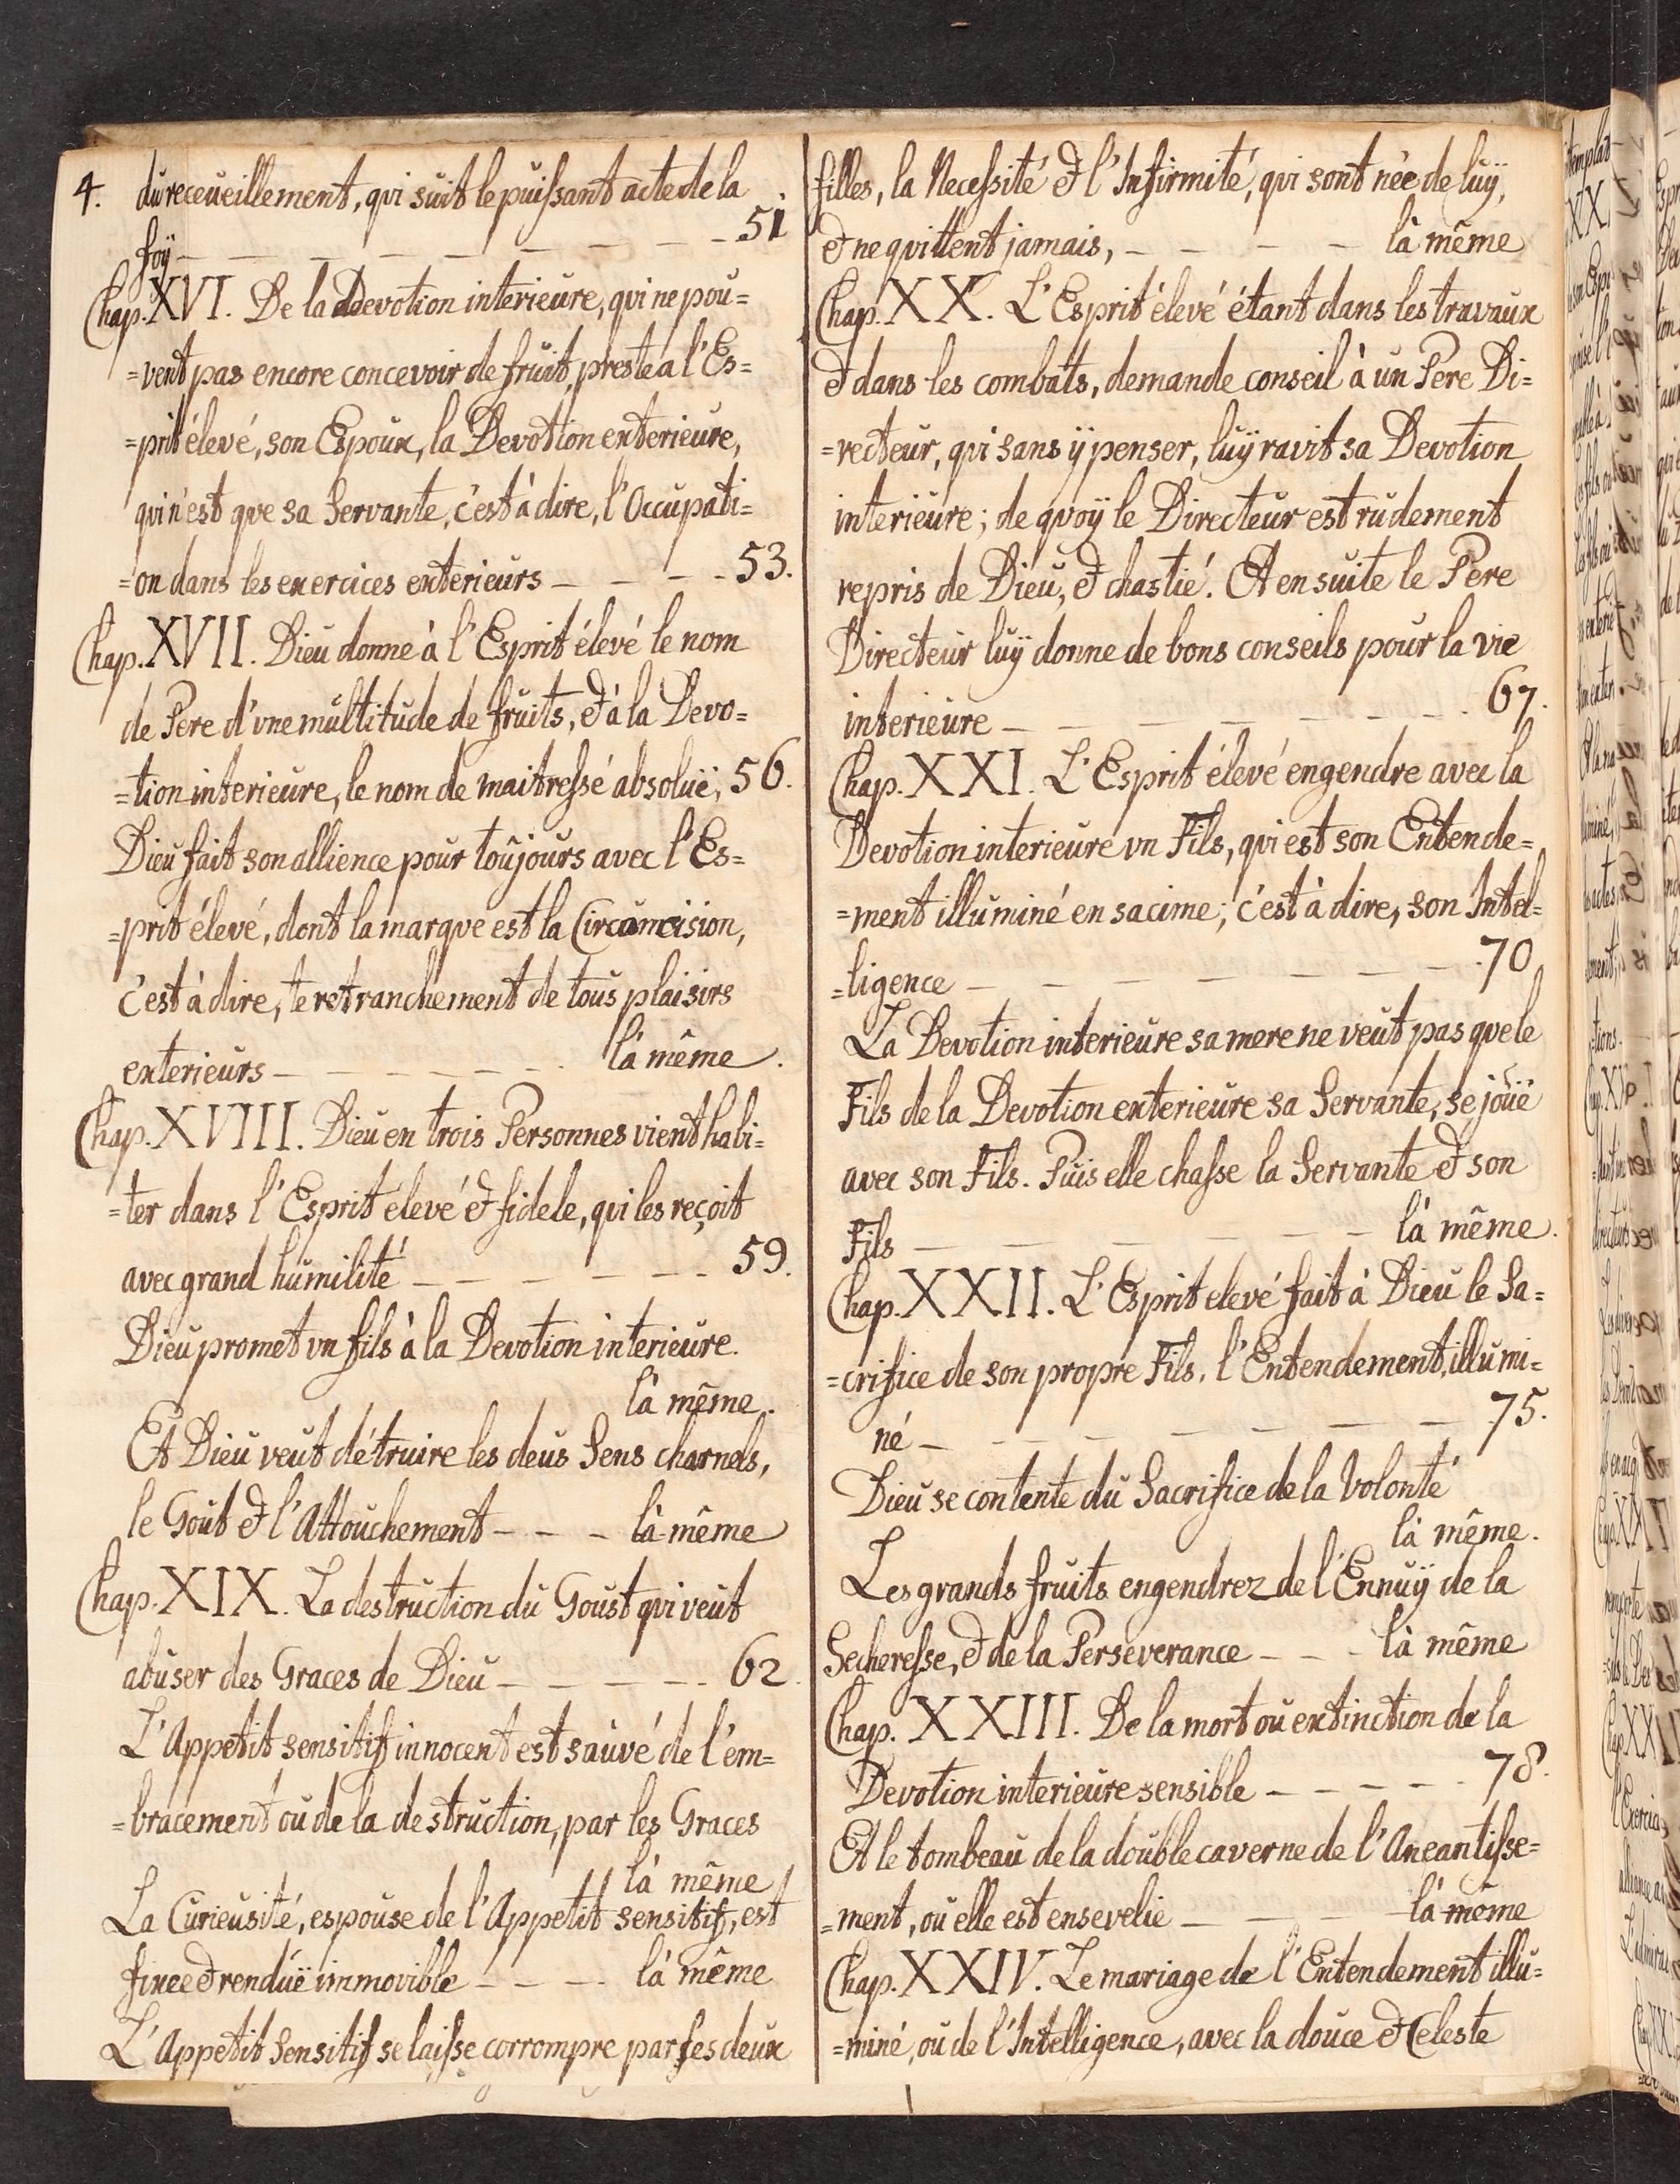 4. du receueillement, qui suit le puissant acte de la
foÿ — — — — — — — 51
Chap. XVI. De la Ddevotion interieure, qui ne pou=
=vent pas encore concevoir de fruit, preste a l'Es=
=prit élevé, son Espoux, la Devotion exterieure,
qui n'est que sa Servante, c'est à dire, l'Occupati=
=on dans les exercices exterieurs — — — — 53.
Chap. XVII. Dieu donne à l'Esprit élevé le nom
de Pere d'vne multitude de fruits, & à la Devo=
=tion interieure, le nom de maitressé absoluë; 56.
Dieu fait son allience pour toûjours avec l'Es=
=prit élevé, dont la marque est la Circumcision,
c'est à dire, te retranchement de tous plaisirs
exterieurs — — — — — — là même.
Chap. XVIII. Dieu en trois Personnes vient habi=
=ter dans l'Esprit élevé & fidele, qui les reçoit
avec grand humilité — — — — — — 59.
Dieu promet vn fils à la Devotion interieure.
là même.
Et Dieu veut détruire les deus Sens charnels,
le Goût & l'Attouchement — — — là même
Chap. XIX. La destruction du Goust qui veut
abuser des Graces de Dieu — — — — — 62.
L'Appetit sensitif innocent est sauvé de l'em=
=bracement ou de la destruction, par les Graces
là même
La Curieusité, espouse de l'Appetit sensitif, est
fixee & renduë immovible — — — là même
L'Appetit Sensitif se laisse corrompre par ses deux
filles, la Necessité & l'Infirmité, qui sont née de luÿ,
& ne quittent jamais, — — — — là même
Chap. XX. L'Esprit élevé étant dans les travaux
& dans les combats, demande conseil à un Pere Di=
=recteur, qui sans ÿ penser, luÿ ravit sa Devotion
interieure; de quoÿ le Directeur est rudement
repris de Dieu, & chastié. Et en suite le Pere
Directeur luÿ donne de bons conseils pour la vie
interieure — — — — — — — 67.
Chap. XXI. L'Esprit élevé engendre avec la
Devotion interieure vn Fils, qui est son Entende=
=ment illuminé en sa cime; c'est à dire, son Intel=
=ligence — — — — — — — 70
La Devotion interieure sa mere ne veut pas que le
Fils de la Devotion exterieure sa Servante, se jouë
avec son Fils. Puis elle chasse la Servante & son
Fils — — — — — — là même.
Chap. XXII. L'Esprit elevé fait à Dieu le Sa=
=crifice de son propre Fils, l'Entendement, illumi=
né — — — — — — — 75.
Dieu se contente du Sacrifice de la Volonté
là même.
Les grands fruits engendrez de l'Ennuÿ de la
Secheresse, & de la Perseverance — — — là même
Chap. XXIII. De la mort ou extinction de la
Devotion interieure sensible — — — — — 78.
Et le tombeau de la double caverne de l'Aneantisse=
=ment, où elle est ensevelie — — — — là même
Chap. XXIV. Le mariage de l'Entendement illu=
=miné, ou de l'Intelligence, avec la douce & Celeste